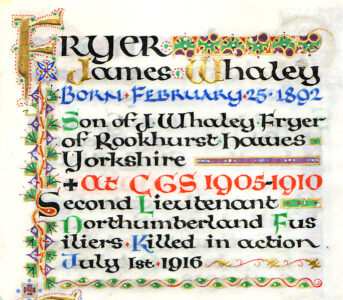 FRYER
JAMES WHALEY
BORN·FEBRUARY·25·1892
Son of J. Whaley Fryer
of Rookhurst·Hawes
Yorkshire
+ at CGS 1905-1910
Second Lieutenant
Northumberland Fus
iliers·Killed in action
July 1st·1916